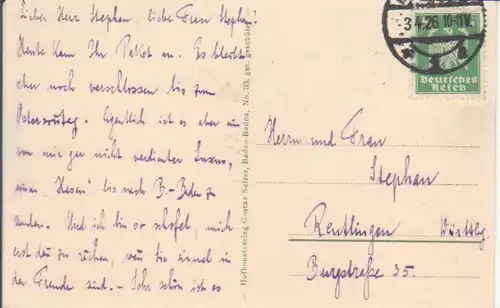 Lieber Herr Stephan, liebe Frau Stephan!
Heute kam Ihr Paket an. Es bleibt
aber noch verschlossen bis zum
Ostersonntag. Eigentlich ist es aber ein
von mir gar nicht verdienter Luxus,
einen "Hasen" bis nach B.-Baden zu
senden. Und ich bin so schofel, mich
erst dann zu rühren, wenn Sie einmal in
der Fremde sind. – Sehr schön ist es
Hofkunstverlag Gustav Salzer, Baden-Baden, No. 133, ges. geschützt
-3.4.26 10-11V.
1
Deutsches
Reich
Herrn und Frau
Stephan
Reutlingen Württbg.
Burgstraße 35.